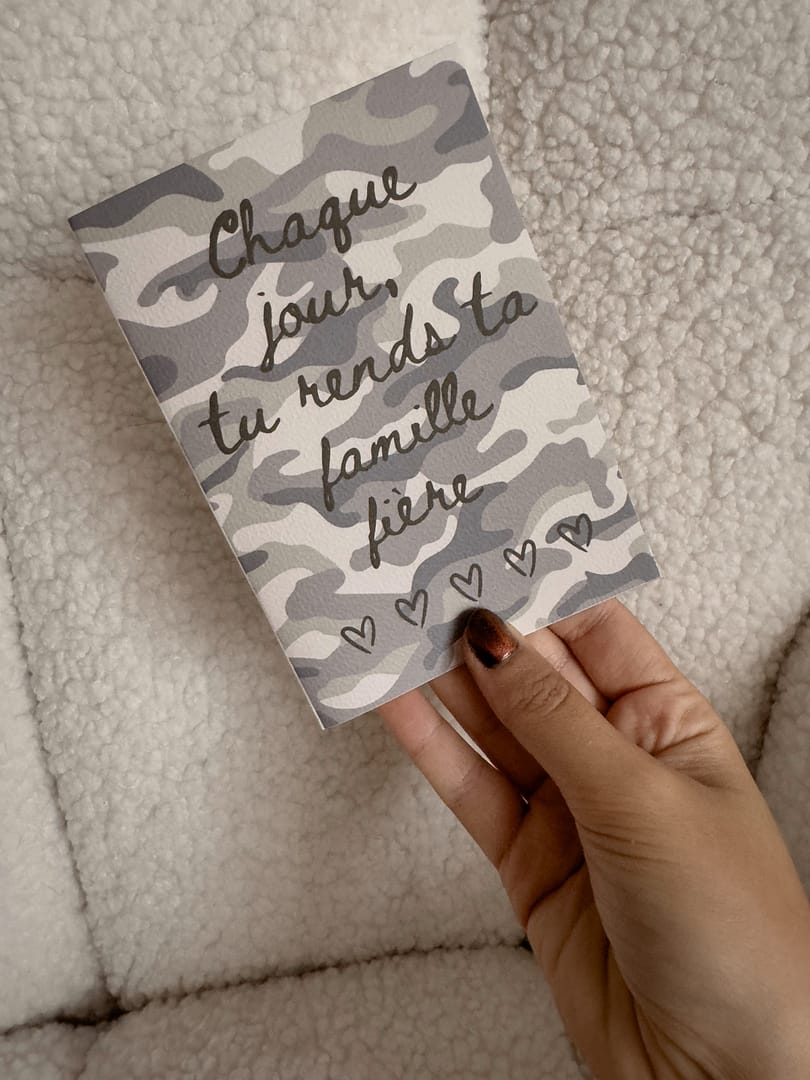 Chaque
jour,
tu rends ta
famille
fière